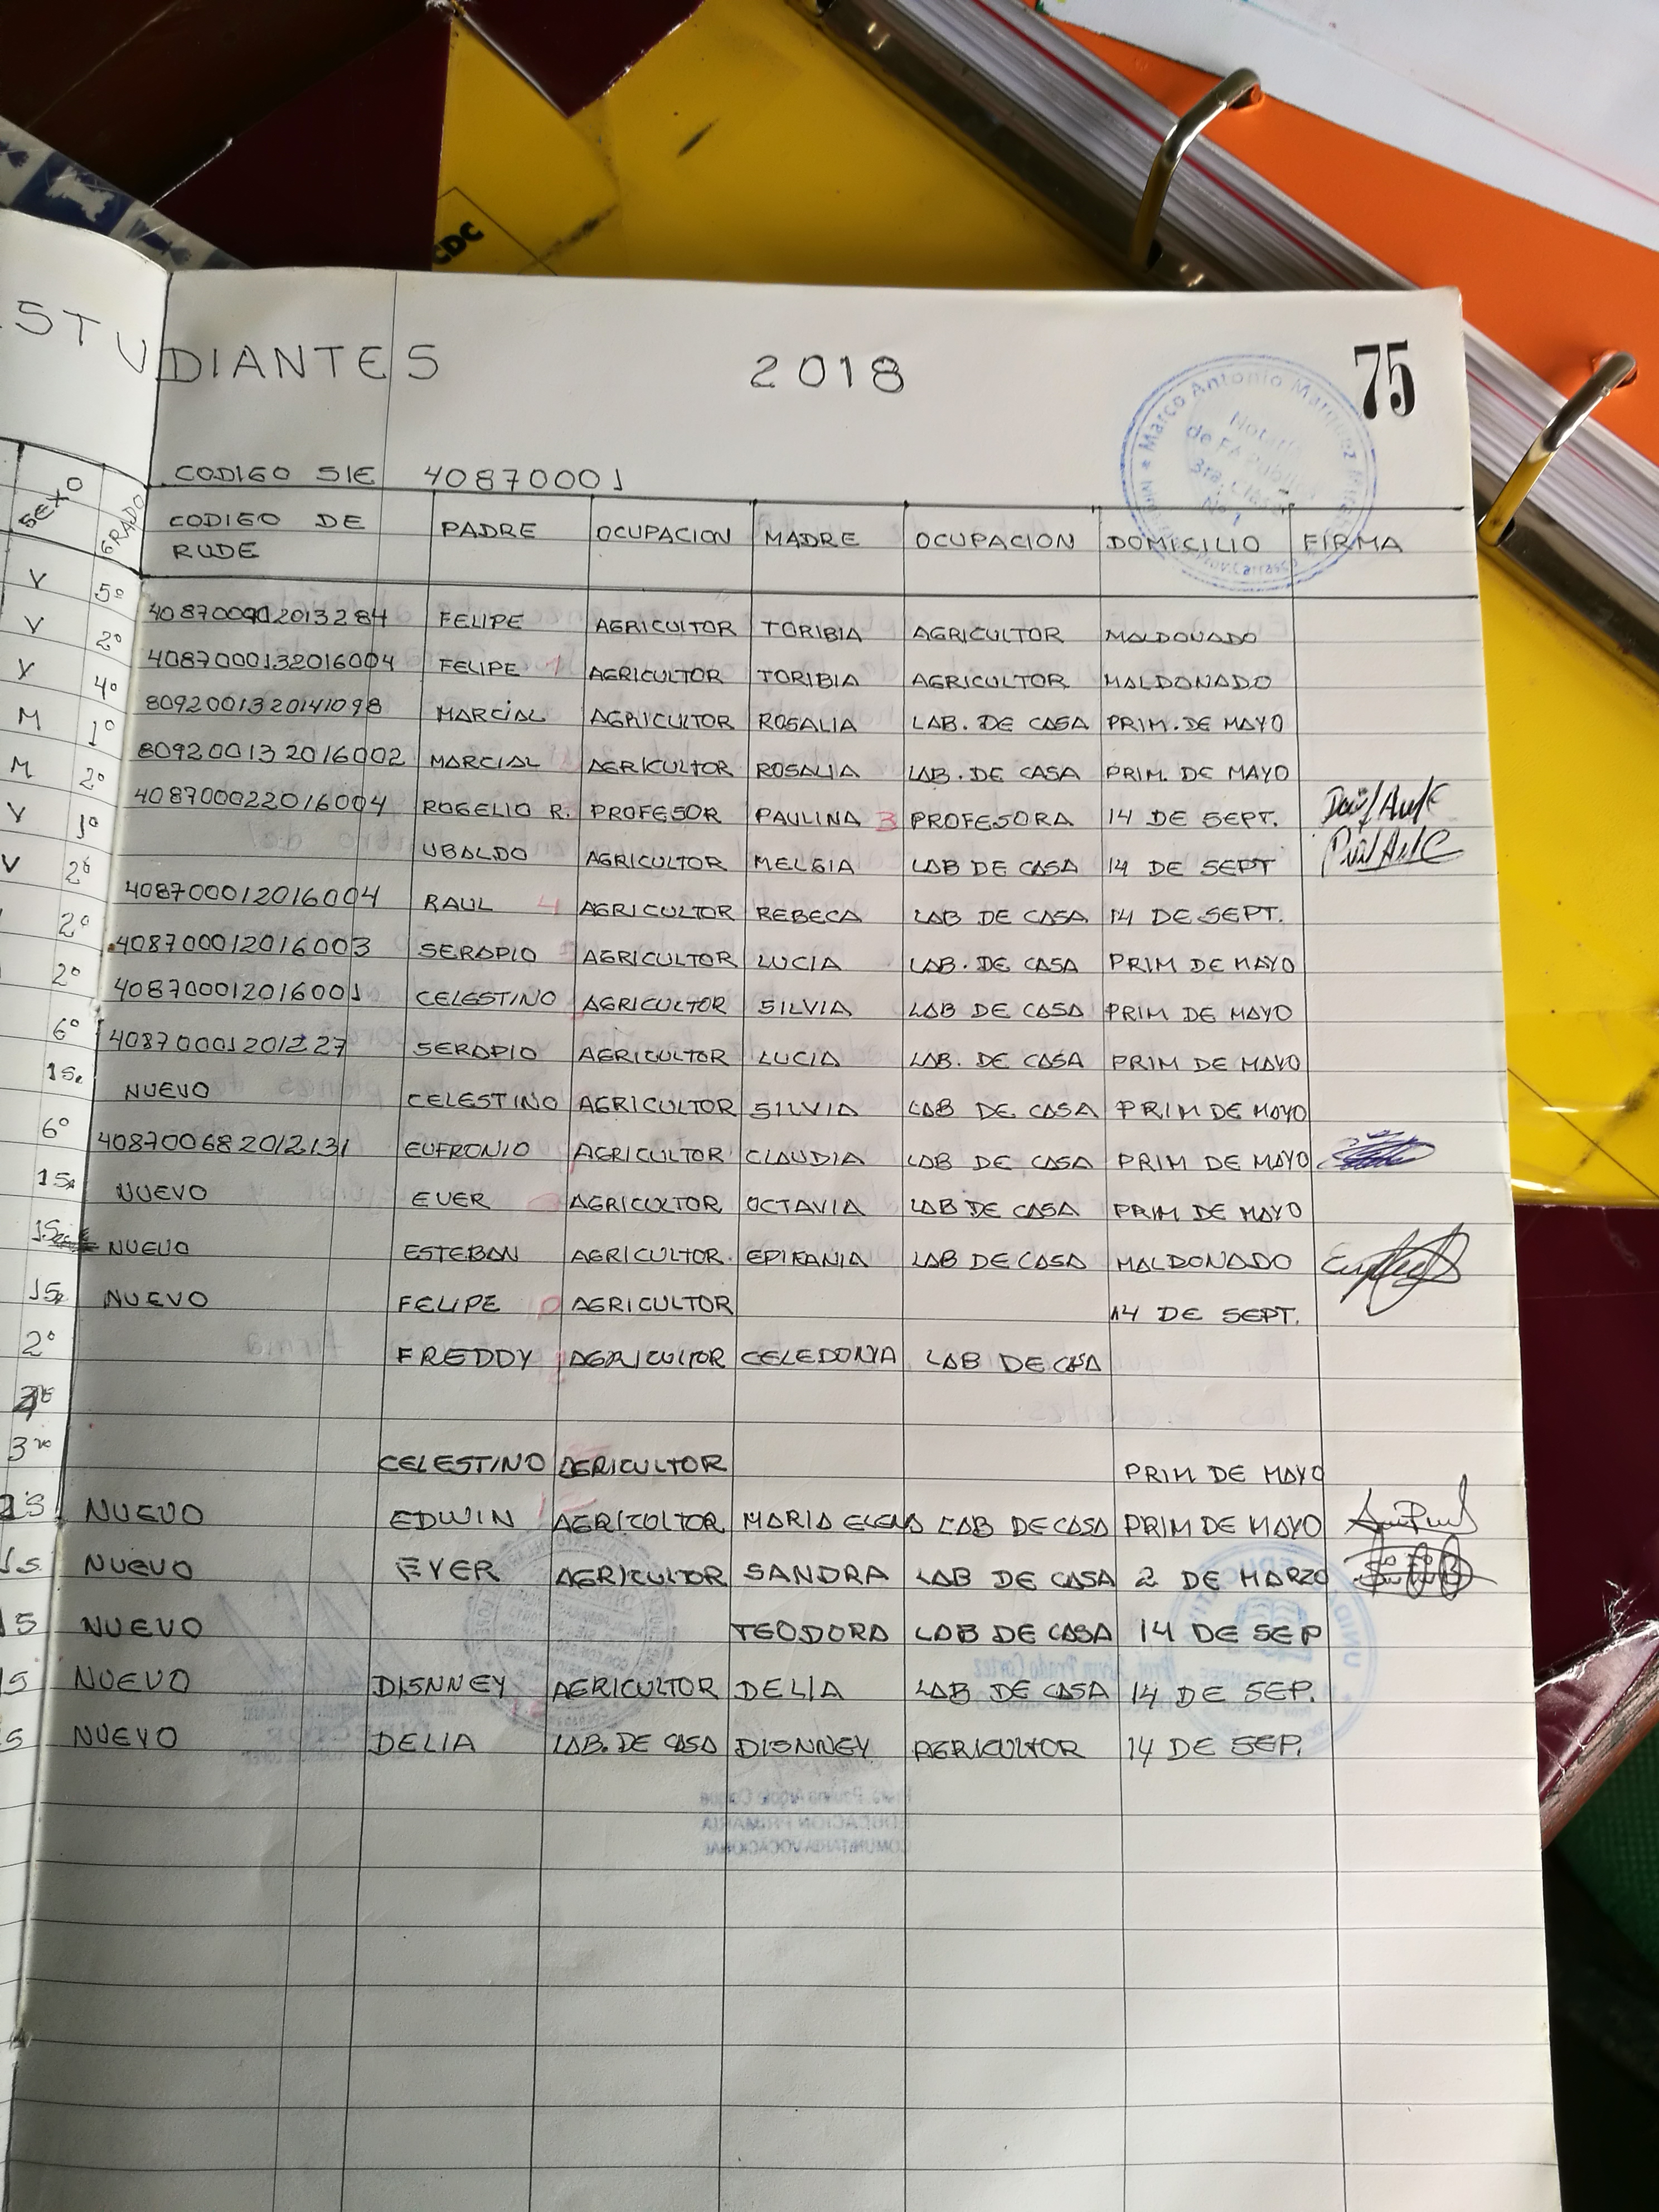 CDC
ESTUDIANTES 2018 75
Marco Antonio Marquez
Notario
de Fé Pública
3ra. Clase
Nº 1
CODIGO SIE 40870001
SEXO GRADO CODIGO DE RUDE PADRE OCUPACION MADRE OCUPACION DOMICILIO FIRMA
V 5º FELIPE AGRICULTOR TORIBIA AGRICULTOR MALDONADO
V 2º 4087000132016004 FELIPE AGRICULTOR TORIBIA AGRICULTOR MALDONADO
V 4º 8092001320141098 MARCIAL AGRICULTOR ROSALIA LAB. DE CASA PRIM. DE MAYO
M 1º 809200132016002 MARCIAL AGRICULTOR ROSALIA LAB. DE CASA PRIM. DE MAYO
M 2º 408700022016004 ROGELIO R. PROFESOR PAULINA 3 PROFESORA 14 DE SEPT.
V 1º UBALDO AGRICULTOR MELGIA LAB DE CASA 14 DE SEPT
V 2º 408700012016004 RAUL 4 AGRICULTOR REBECA LAB DE CASA 14 DE SEPT.
2º 408700012016003 SERAPIO AGRICULTOR LUCIA LAB. DE CASA PRIM DE MAYO
2º 408700012016001 CELESTINO AGRICULTOR SILVIA LAB DE CASA PRIM DE MAYO
6º 40870001201227 SERAPIO AGRICULTOR LUCIA LAB. DE CASA PRIM DE MAYO
1S. NUEVO CELESTINO AGRICULTOR SILVIA LAB DE CASA PRIM DE MAYO
6º 408700682012131 EUFRONIO AGRICULTOR CLAUDIA LAB DE CASA PRIM DE MAYO
1S. NUEVO EVER AGRICULTOR OCTAVIA LAB DE CASA PRIM DE MAYO
NUEVO ESTEBAN AGRICULTOR. EPIFANIA LAB DE CASA MALDONADO
1S. NUEVO FELIPE AGRICULTOR 14 DE SEPT.
2º FREDDY AGRICULTOR CELEDONIA LAB DE CASA
3ro CELESTINO AGRICULTOR PRIM DE MAYO
1S NUEVO EDWIN AGRICULTOR MARIA ELENA LAB DE CASA PRIM DE MAYO
1S. NUEVO EVER AGRICULTOR SANDRA LAB DE CASA 2 DE MARZO
1S NUEVO TEODORA LAB DE CASA 14 DE SEP
S NUEVO DISNNEY AGRICULTOR DELIA LAB DE CASA 14 DE SEP.
S NUEVO DELIA LAB. DE CASA DISNNEY AGRICULTOR 14 DE SEP.